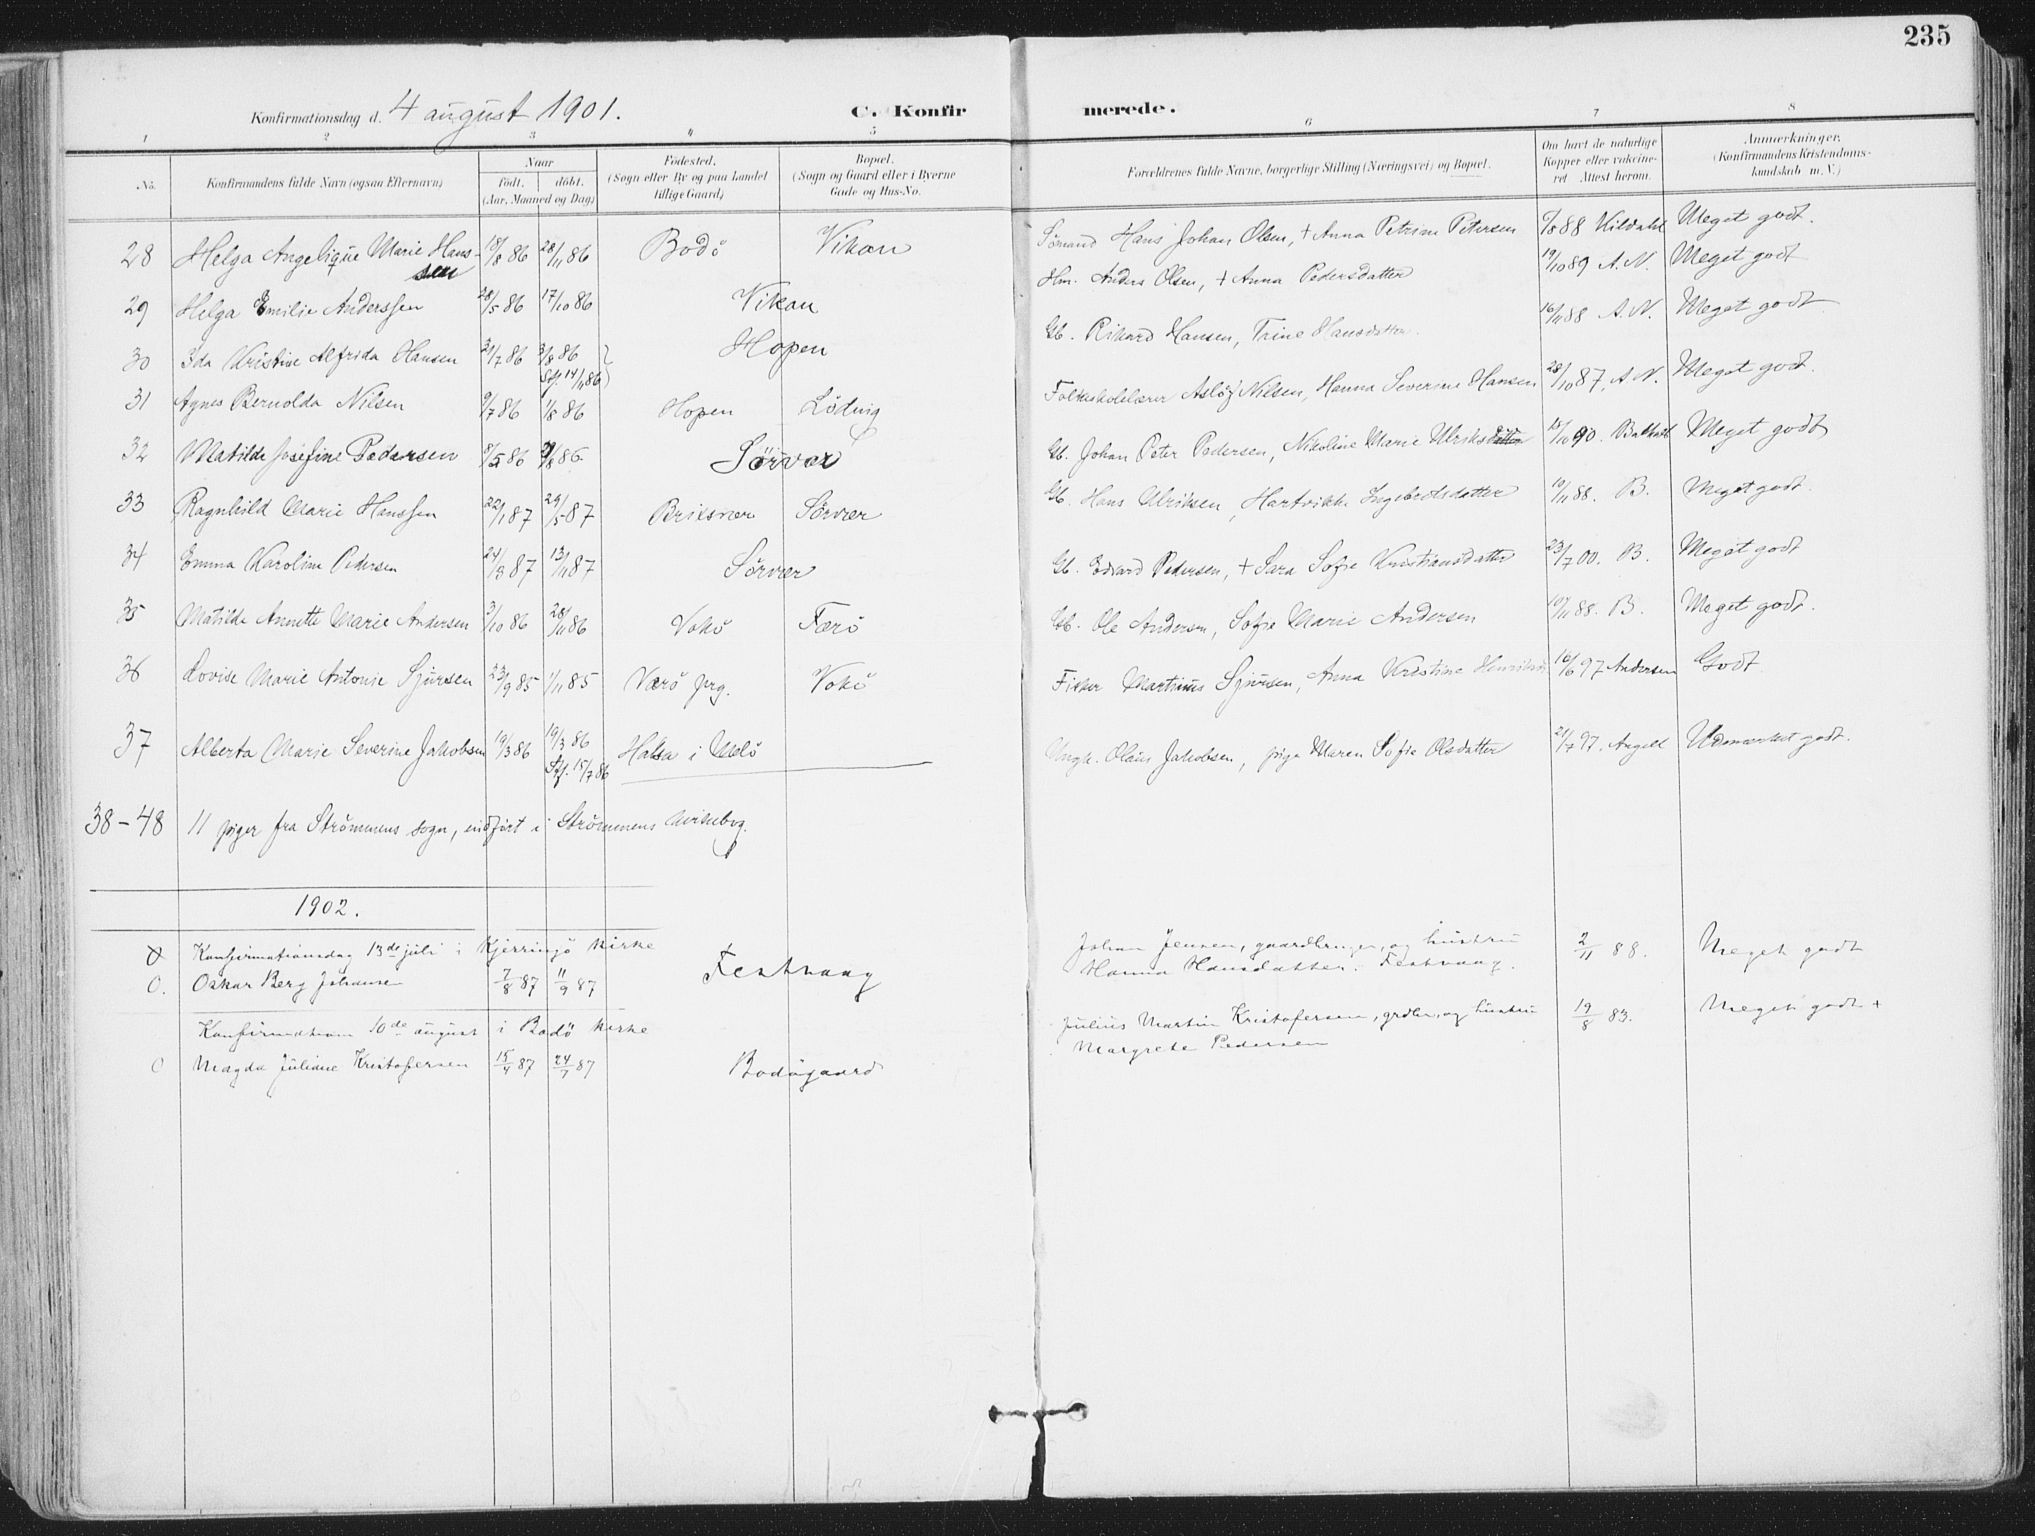 235
Konfirmationsdag d. 4 august 1901.
C. Konfirmerede.
1 2 3 4 5 6 7 8
No. Konfirmandens fulde Navn (ogsaa Efternavn) Naar født. døbt. (Aar, Maaned og Dag) Fødested. (Sogn eller By og paa Landet tillige Gaard) Bopæl. (Sogn og Gaard eller i Byerne Gade og Hus-No. Forældrenes fulde Navne, borgerlige Stilling (Næringsvei) og Bopæl. Om havt de naturlige Kopper eller vakcineret Attest herom. Anmærkninger. (Konfirmandens Kristendomskundskab m. V.)
28 Helga Angelique Marie Hanssen 18/8 86 28/11 86 Bodö Vikan Sömand Hans Johan Olsen, + Anna Petrine Petersen 7/8 88 Kildahl Meget godt.
29 Helga Emilie Anderssen 28/5 86 17/10 86 Vikan Hm. Anders Olsen, + Anna Pedersdatter 19/10 89 A.N. Meget godt
30 Ida Kristine Alfrida Hansen 31/7 86 3/8 86 Stf. 14/11 86 Hopen Gb. Rikard Hansen, Trine Hansdatter. 16/11 88 A.N. Meget godt
31 Agnes Bernolda Nilsen 9/7 86 1/8 86 Hopen Löding Folkeskolelærer Aslöf Nilsen, Hanna Severine Hansen 28/10 87. A N. Meget godt.
32 Matilde Josefine Pedersen 8/5 86 /8 86. Sörvær Gb. Johan Peter Pedersen, Nikoline Marie Ulriksdatter /10 90. Meget godt
33 Ragnhild Marie Hanssen 22/1 87 29/5 87 Briksvær Sörvær Gb. Hans Ulriksen, Hartvikke Ingebretsdatter 10/11 88. B. Meget godt.
34 Emma Karoline Pedersen 24/3 87 13/11 87 Sörvær Gb. Edvard Pedersen, + Sara Sofie Kristiansdatter 23/7 00. B. Meget godt
35 Matilde Annette Marie Andersen 3/10 86 28/11 86 Vokö Færö Gb. Ole Andersen, Sofie Marie Andersen 10/11 88. B. Meget godt.
36 Lovise Marie Antonie Sjursen 23/9 85 1/11 85 Værö prg. Vokö Fisker Martinus Sjursen, Anna Kristine 16/6 97 Andersen Godt.
37 Alberta Marie Severine Jakobsen 19/3 86 19/3 86 Stf. 15/7 86 Halsa i Melö Ungk. Olaus Jakobsen, pige Maren Sofie Olsdatter 21/7 97. Angell Udmærket godt.
38-48 11 piger fra Strömmens sogn, indfört i Strömmens kirkebog.
1902.
Konfirmationsdag 13de juli i Kjerringö kirke
O. Oskar Berg Johansen 7/8 87 11/9 87 Festvaag Johan Jensen, gaardbruger, og hustru Hanna Hansdatter. Festvaag. 2/11 88. Meget godt
Konfirmation 10de august i Bodö kirke
O Magda Juliane Kristofersen 15/4 87 24/7 87 Bodögaard Julius Martin Kristofersen, grdbr, og hustru Margrete Pedersen 19/8 83. Meget godt +